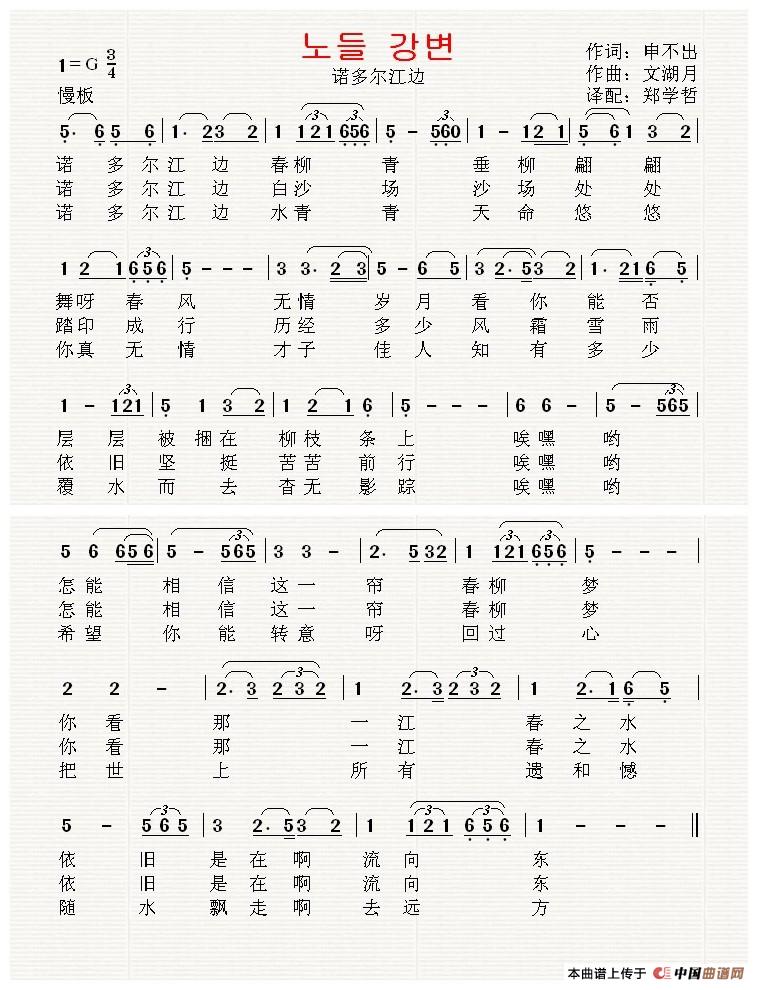 노들 강변
诺多尔江边
1=G 3/4
慢板
作词：申不出
作曲：文湖月
译配：郑学哲
5· 6 5 6 | 1· 2 3 2 | 1 1 2 1 6 5 6 | 5 - 5 6 0 | 1 - 1 2 1 | 5 6 1 | 3 2 |
诺 多 尔 江 边 春 柳 青 垂 柳 翩 翩
诺 多 尔 江 边 白 沙 场 沙 场 处 处
诺 多 尔 江 边 水 青 青 天 命 悠 悠
1 2 1 6 5 6 | 5 - - - | 3 3· 2 3 | 5 - 6 5 | 3 2· 5 3 2 | 1· 2 1 6 5 |
舞 呀 春 风 无 情 岁 月 看 你 能 否
踏 印 成 行 历 经 多 少 风 霜 雪 雨
你 真 无 情 才 子 佳 人 知 有 多 少
1 - 1 2 1 | 5 1 3 2 | 1 2 1 6 | 5 - - - | 6 6 - | 5 - 5 6 5 |
层 层 被 捆 在 柳 枝 条 上 唉 嘿 哟
依 旧 坚 挺 苦 苦 前 行 唉 嘿 哟
覆 水 而 去 杳 无 影 踪 唉 嘿 哟
5 6 6 5 6 | 5 - 5 6 5 | 3 3 - | 2· 5 3 2 | 1 1 2 1 6 5 6 | 5 - - - |
怎 能 相 信 这 一 帘 春 柳 梦
怎 能 相 信 这 一 帘 春 柳 梦
希 望 你 能 转 意 呀 回 过 心
2 2 - | 2· 3 2 3 2 | 1 2· 3 2 3 2 | 1 2· 1 6 5 |
你 看 那 一 江 春 之 水
你 看 那 一 江 春 之 水
把 世 上 所 有 遗 和 憾
5 - 5 6 5 | 3 2· 5 3 2 | 1 1 2 1 6 5 6 | 1 - - ‖
依 旧 是 在 啊 流 向 东
依 旧 是 在 啊 流 向 东
随 水 飘 走 啊 去 远 方
本曲谱上传于 中国曲谱网